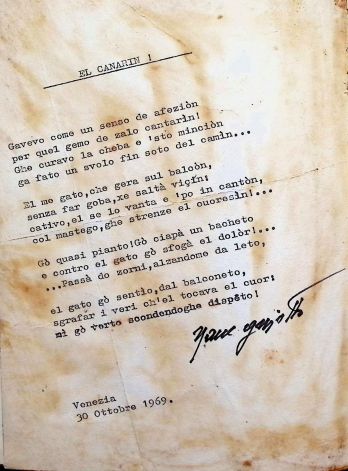 EL CANARIN !
Gavevo come un senso de afeziòn
per quel gemo de zalo cantarin!
Ghe curavo la cheba e 'sto minciòn
ga fato un svolo fin soto del camìn...
El me gato,che gera sul balcòn,
senza far goba,xe saltà viçìn;
cativo,el se lo vanta e 'po in cantòn,
col mastego,ghe strenze el cuoresin!...
Gò quasi pianto!Gò ciapà un bacheto
e contro el gato gò sfogà el dolòr!...
...Passà do zorni,alzandome da leto,
el gato gò sentìo,dal balconeto,
sgrafàr i veri ch'el tocava el cuor;
mi gò verto scondendoghe dispèto!
Venezia
30 Ottobre 1969.